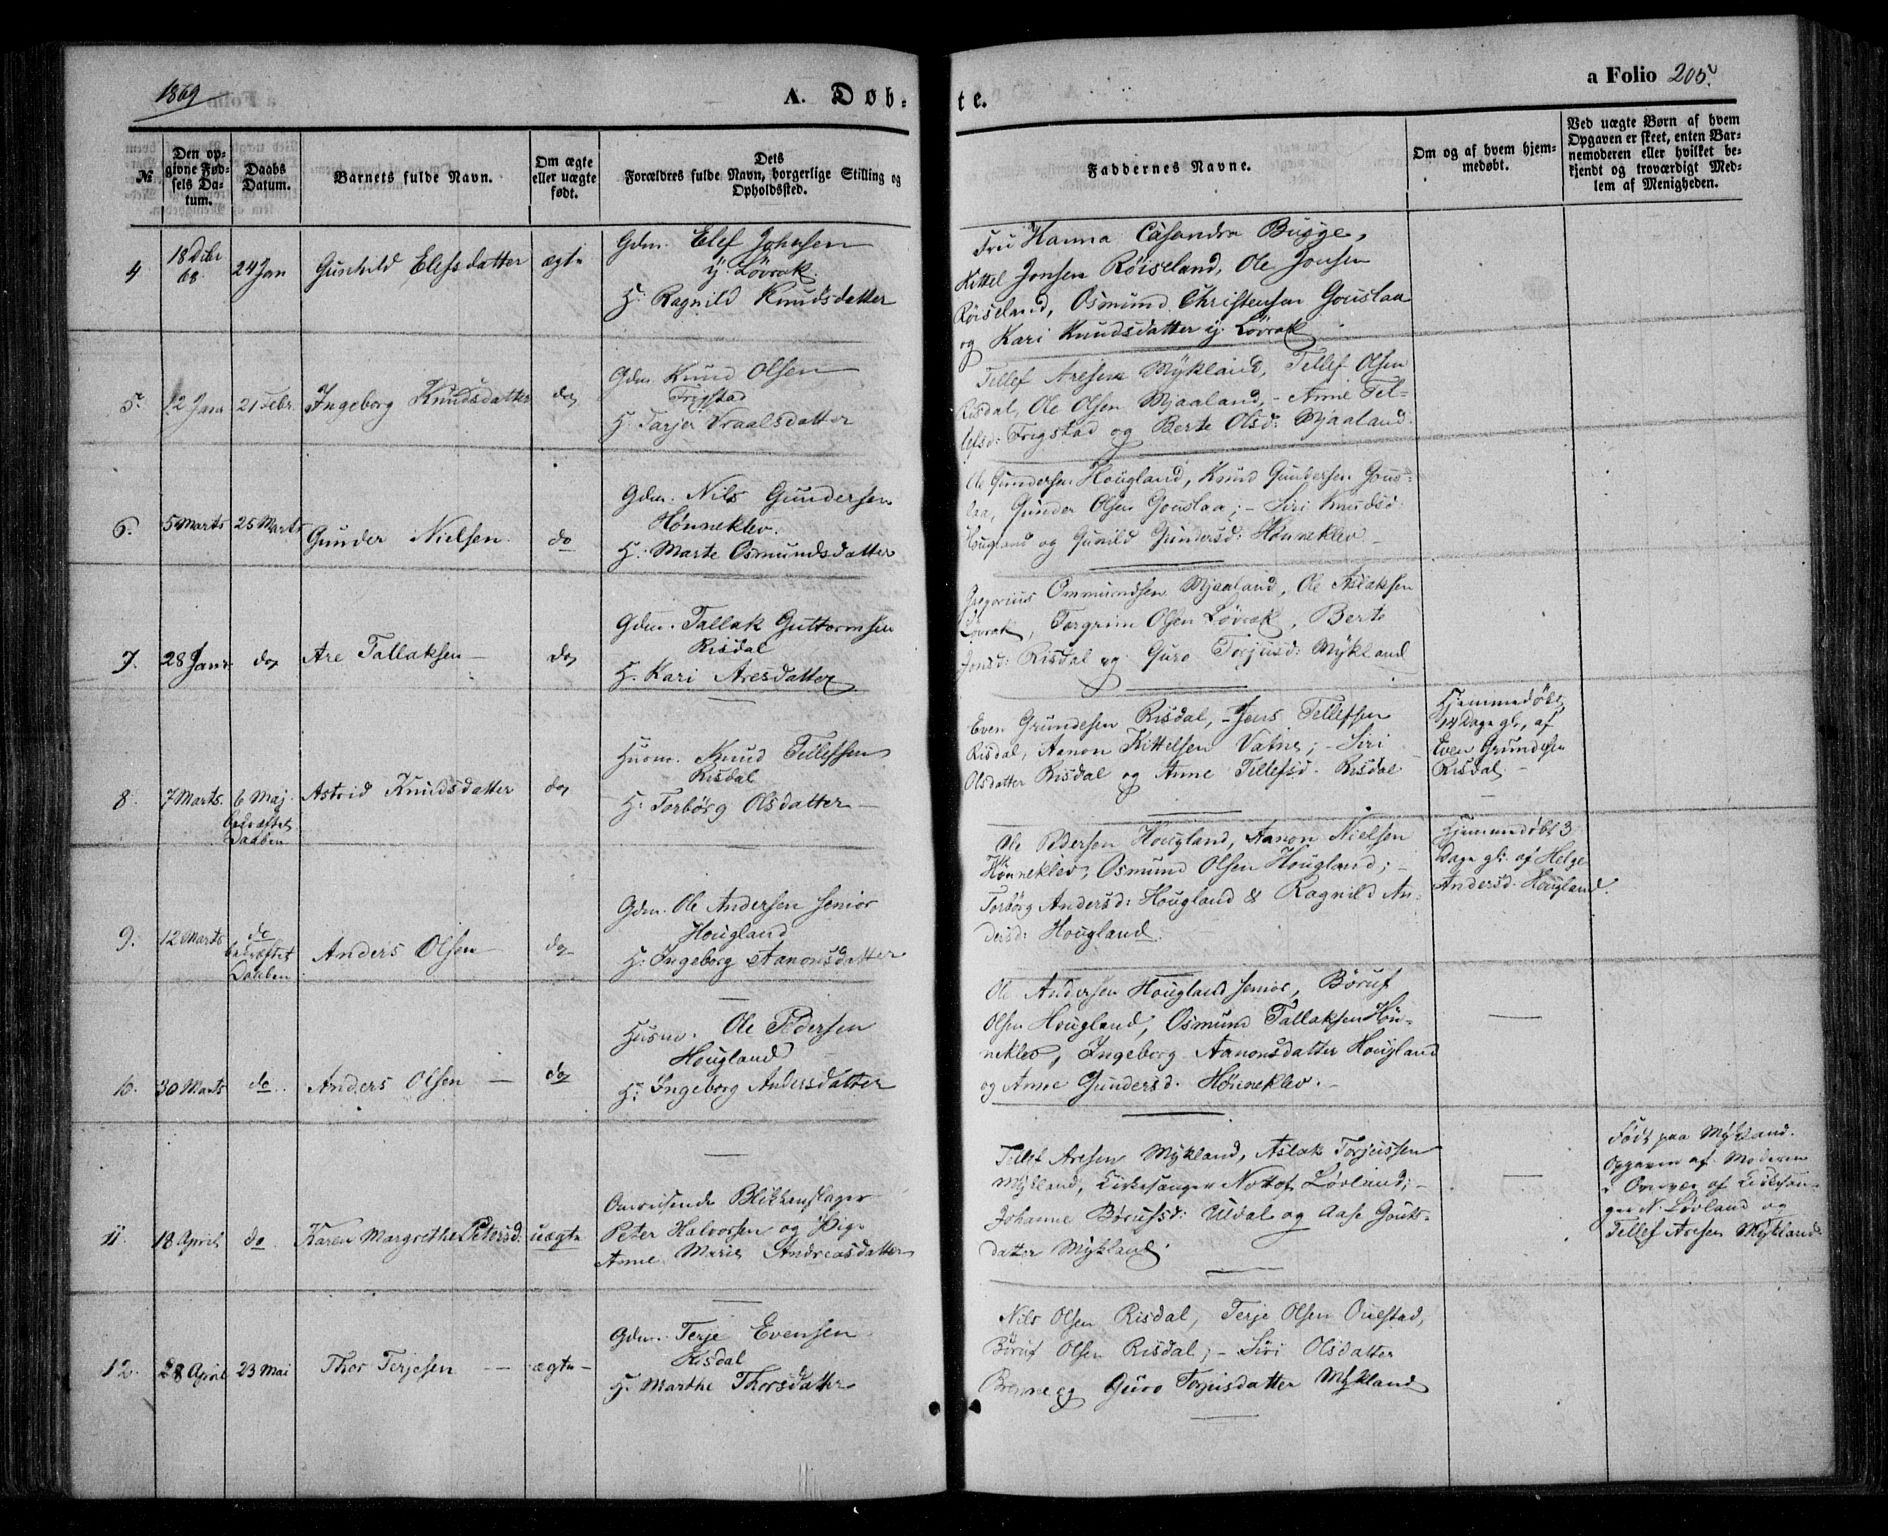 1869
A. Døb-
te.
a Folio 205
№
Den op-
givne Fød-
sels Da-
tum.
Daabs
Datum.
Barnets fulde Navn.
Om ægte
eller uægte
født.
Dets
Forældres fulde Navn, borgerlige Stilling og
Opholdssted.
Faddernes Navne.
Om og af hvem hjem-
medøbt.
Ved uægte Børn af hvem
Opgaven er skeet, enten Bar-
nemoderen eller hvilket be-
kjendt og troværdigt Med-
lem af Menigheden.
4
18 Dcbr
68
24 Jan
Gunhild Elefsdatter
ægte
Gdm. Elef Johnsen
y. Løvrak
H: Ragnild Knudsdatter
Fru Hanna Casandra Bugge,
Kittel Jonsen Røiseland, Ole Jonsen
Røiseland, Osmund Christensen Gouslaa
og Kari Knudsdatter y. Løvrak
5.
12 Janr
21 Febr.
Ingeborg Knudsdatter
do
Gdm. Knud Olsen
Frigstad
H: Tarjer Vraalsdatter
Tellef Aresen Mykland, Tellef Olsen
Risdal, Ole Olsen Mjaaland, - Anne Tel-
lefsd: Frigstad og Berte Olsd: Mjaaland.
6.
5 Marts
25 Marts
Gunder Nielsen.
do
Gdm. Nils Gundersen
Hønneklev.
H: Marte Osmundsdatter
Ole Gundersen Hougland, Knud Gundersen Gous-
laa, Gunder Olsen Gouslaa; - Siri Knudsd:
Hougland og Gunild Gundersd: Hønneklev -
7.
28 Janr
do
Are Tallaksen -
do
Gdm. Tallak Guttormsen
Risdal
H. Kari Aresdatter
Gregorius Ommundsen Mjaaland, Ole Aslaksen
Løvrak, Torgrim Olsen Løvrak, Berte
Jonsd: Risdal og Guro Torjusd: Mykland
8.
7 Marts.
6 Maj
bekræftet
Daaben
Astrid Knudsdatter
do
Husm. Knud Tellefsen
Risdal
H: Torbørg Olsdatter -
Even Grundesen Risdal, - Jens Tellefsen
Risdal, Aanon Kittelsen Vatne; - Siri
Olsdatter Risdal og Anne Tellefsd. Risdal
Hjemmedøbt
14 Dage gl., af
Even Grundesen
Risdal -
9.
12 Marts
do
bekræftet
Daaben
Anders Olsen -
do
Gdm. Ole Andersen senior
Hougland
H: Ingeborg Aanonsdatter
Ole Pedersen Hougland, Aanon Nielsen
Hønneklev, Osmund Olsen Hougland; -
Torbørg Andersd: Hougland & Ragnild An-
dersd: Hougland.
Hjemmedøbt 3
Dage gl. af Helge
Andersd. Hougland.
10.
30 Marts
do.
Anders Olsen -
do
Husm. Ole Pedersen
Hougland
H: Ingeborg Andersdatter
Ole Andersen Hougland senior, Børuf
Olsen Hougland, Osmund Tallaksen Høn-
neklev, Ingeborg Aanonsdatter Hougland
og Anne Gundersd. Hønneklev. -
11.
18 April
do
Karen Margrethe Petersd:
uægte
Omreisende Blikkenslager
Peter Halvorsen og Pige
Anne Marie Andreasdatter
Tellef Aresen Mykland, Aslak Torjussen
Mykland, Kirkesanger Notof Løvland; -
Johanne Børufsd: Uldal og Aase Gouts-
datter Mykland.
Født paa Mykland.
Opgaven af Moderen
i Overvær af Kirkesan-
ger N. Løvland og
Tellef Aresen Mykland
12.
28 April
23 Mai
Thor Terjesen - -
ægte -
Gdm. Terje Evensen
Risdal
H. Marthe Thorsdatter
Nils Olsen Risdal, Terje Olsen Ouestad,
Børuf Olsen Risdal; - Siri Olsdatter
Brenne og Guro Torjusdatter Mykland